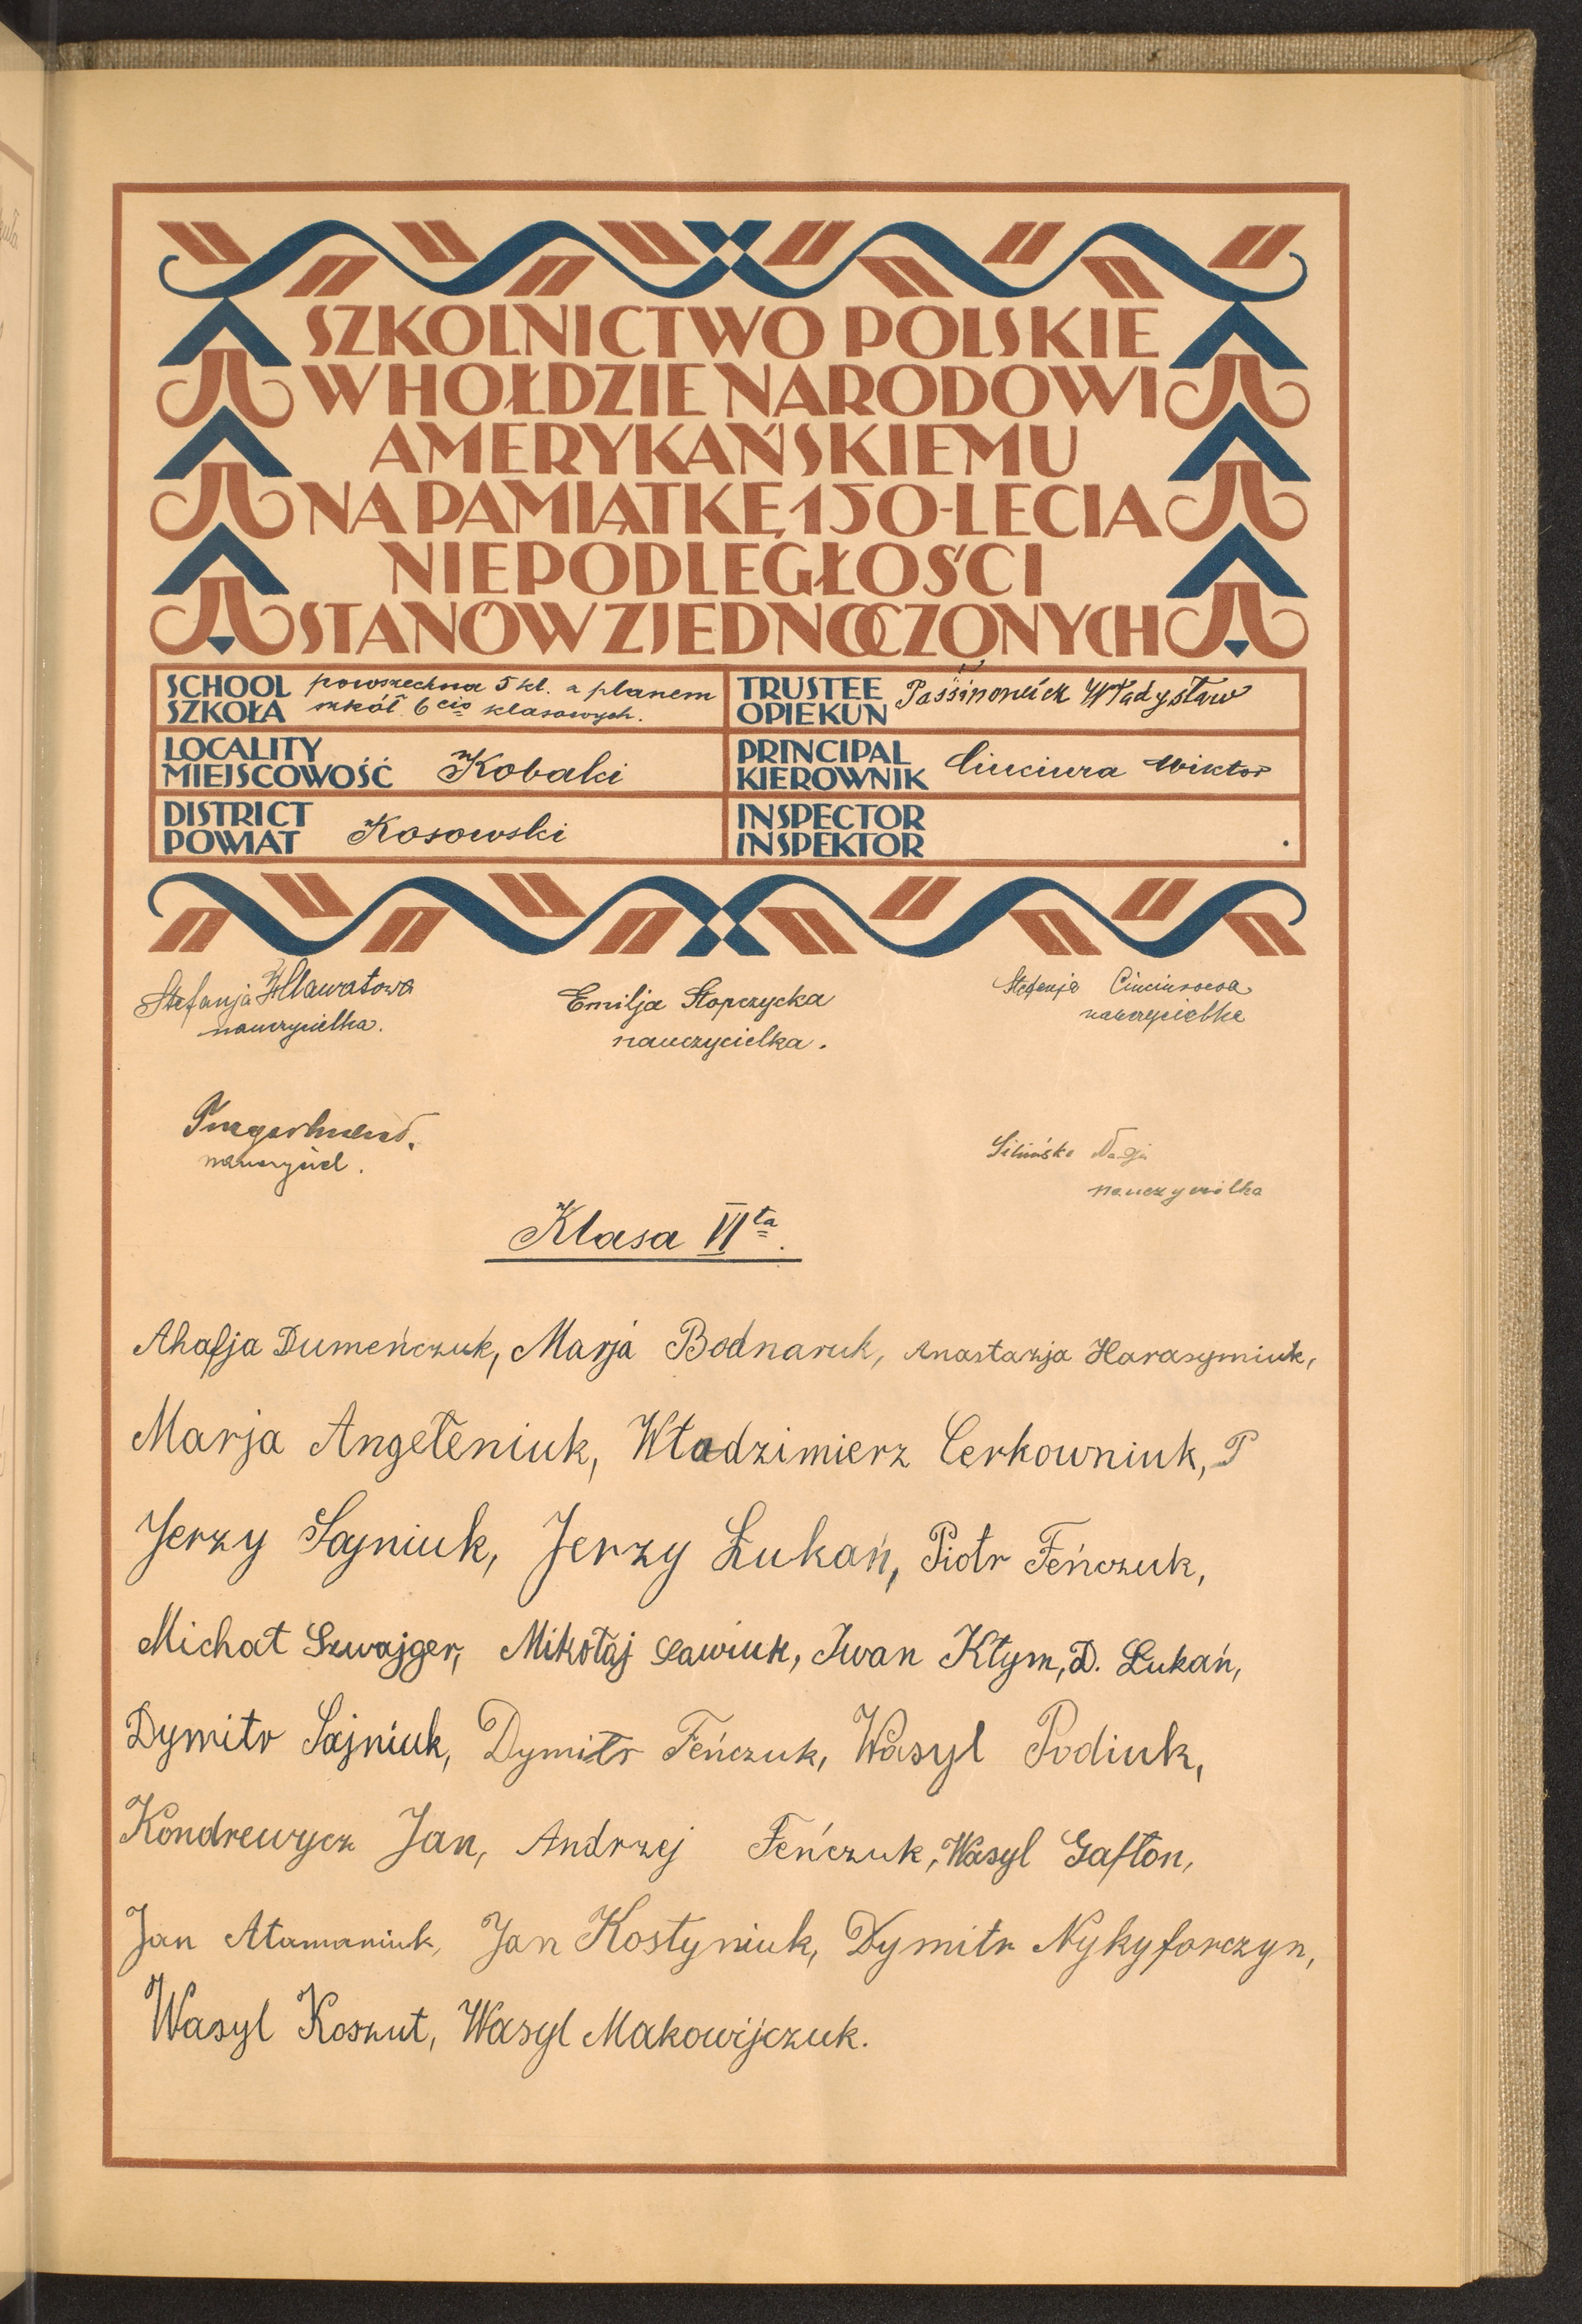 SZKOLNICTWO POLSKIE
W HOŁDZIE NARODOWI
AMERYKAŃSKIEMU
NA PAMIĄTKĘ 150-LECIA
NIEPODLEGŁOŚCI
STANÓW ZJEDNOCZONYCH
SCHOOL powszechna 5 kl. z planem
SZKOŁA szkół 6 cio klasowych.
TRUSTEE
OPIEKUN Władysław
LOCALITY
MIEJSCOWOŚĆ Kobaki
PRINCIPAL
KIEROWNIK Ciuciura Wiktor
DISTRICT
POWIAT Kosowski
INSPECTOR
INSPEKTOR
Stefanja Hławatowa
nauczycielka.
Emilja Stopczycka
nauczycielka.
Stefanja Ciuciurowa
nauczycielka
nauczyciel.
nauczycielka
Klasa VI ta.
Ahafja Dumeńczuk, Marja Bodnaruk, Anastazja Harasymiuk,
Marja Angełeniuk, Włodzimierz Cerkowniuk, P
Jerzy Sajniuk, Jerzy Łukań, Piotr Feńczuk,
Michał Szwajger, Mikołaj Sławiuk, Iwan Kłym, D. Łukań,
Dymitr Sajniuk, Dymitr Feńczuk, Wasyl Podiuk,
Kondrewycz Jan, Andrzej Feńczuk, Wasyl Gafton,
Jan Atamaniuk, Jan Kostyniuk, Dymitr Nykyforczyn,
Wasyl Koszut, Wasyl Makowijczuk.